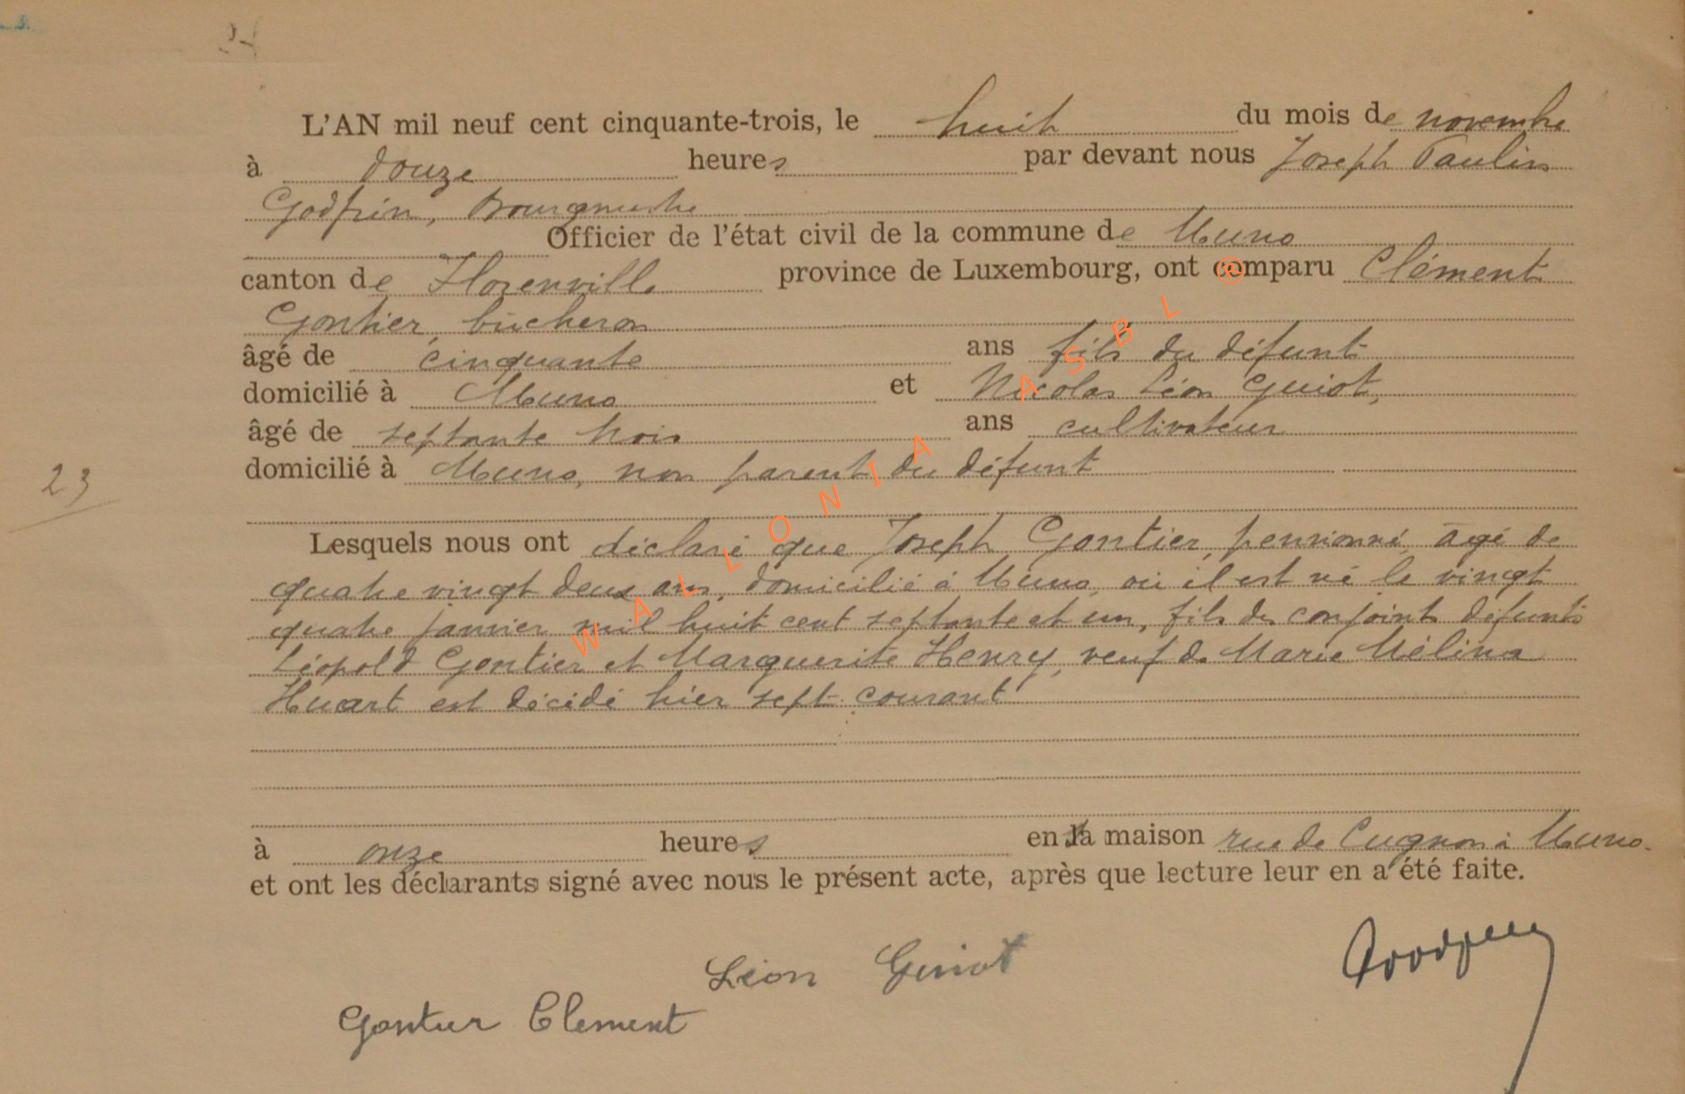 L'AN mil neuf cent cinquante-trois, le huit du mois de novembre
à douze heures par devant nous Joseph Paulin
Godfrin, Bourgmestre
Officier de l'état civil de la commune de Muno
canton de Florenville province de Luxembourg, ont comparu Clément
Gontier, bûcheron
âgé de cinquante ans fils du défunt
domicilié à Muno et Nicolas Léon Guiot,
âgé de septante trois ans cultivateur
domicilié à Muno, non parent du défunt
23
Lesquels nous ont déclaré que Joseph Gontier, pensionné, âgé de
quatre vingt deux ans, domicilié à Muno, où il est né le vingt
quatre janvier mil huit cent septante et un, fils des conjoints défunts
Léopold Gontier et Marguerite Henry, veuf de Marie Mélina
Huart est décédé hier sept courant
à onze heures en sa maison rue de Cugnon à Muno.
et ont les déclarants signé avec nous le présent acte, après que lecture leur en a été faite.
Léon Guiot
Gontier Clement
WALLONIA ASBL ®